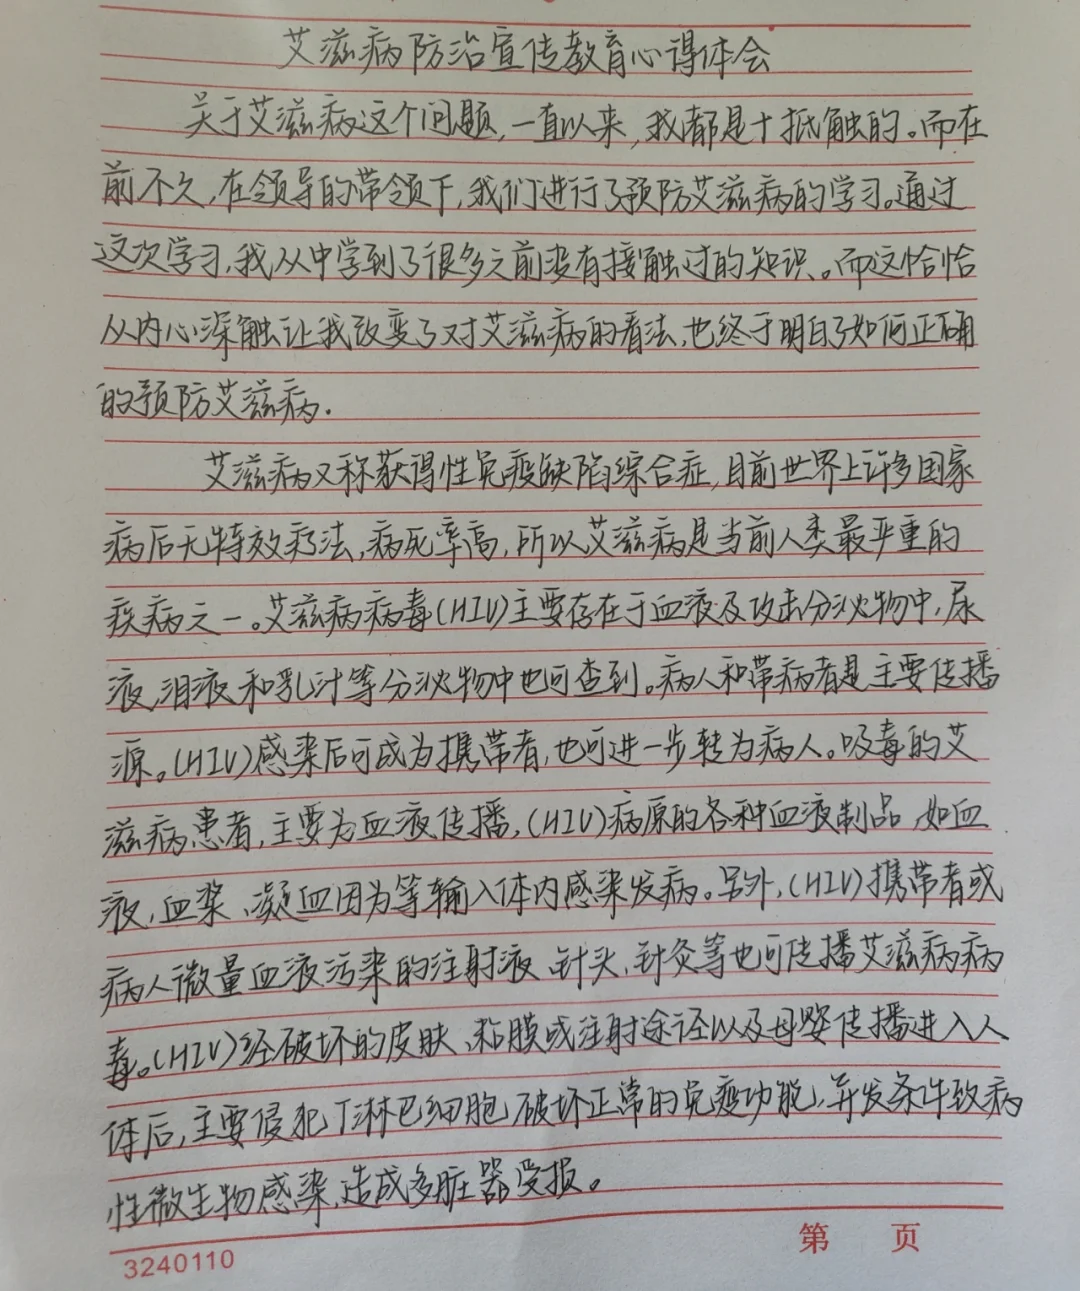 艾滋病防治宣传教育心得体会
关于艾滋病这个问题，一直以来，我都是十抵触的。而在
前不久，在领导的带领下，我们进行了预防艾滋病的学习。通过
这次学习，我从中学到了很多之前没有接触过的知识。而这恰恰
从内心深触让我改变了对艾滋病的看法，也终于明白了如何正确
的预防艾滋病.
艾滋病又称获得性免疫缺陷综合症，目前世界上许多国家
病后无特效疗法，病死率高，所以艾滋病是当前人类最严重的
疾病之一。艾滋病病毒(HIV)主要存在于血液及攻击分泌物中，尿
液，泪液和乳汁等分泌物中也可查到。病人和带病者是主要传播
源。(HIV)感染后可成为携带者，也可进一步转为病人。吸毒的艾
滋病患者，主要为血液传播，(HIV)病原的各种血液制品，如血
液，血浆、凝血因为等输入体内感染发病。另外，(HIV)携带者或
病人微量血液污染的注射液、针头、针灸等也可传播艾滋病病
毒。(HIV)经破坏的皮肤、粘膜或注射途径以及母婴传播进入人
体后，主要侵犯T淋巴细胞，破坏正常的免疫功能，并发条件致病
性微生物感染，造成多脏器受报。
第 页
3240110